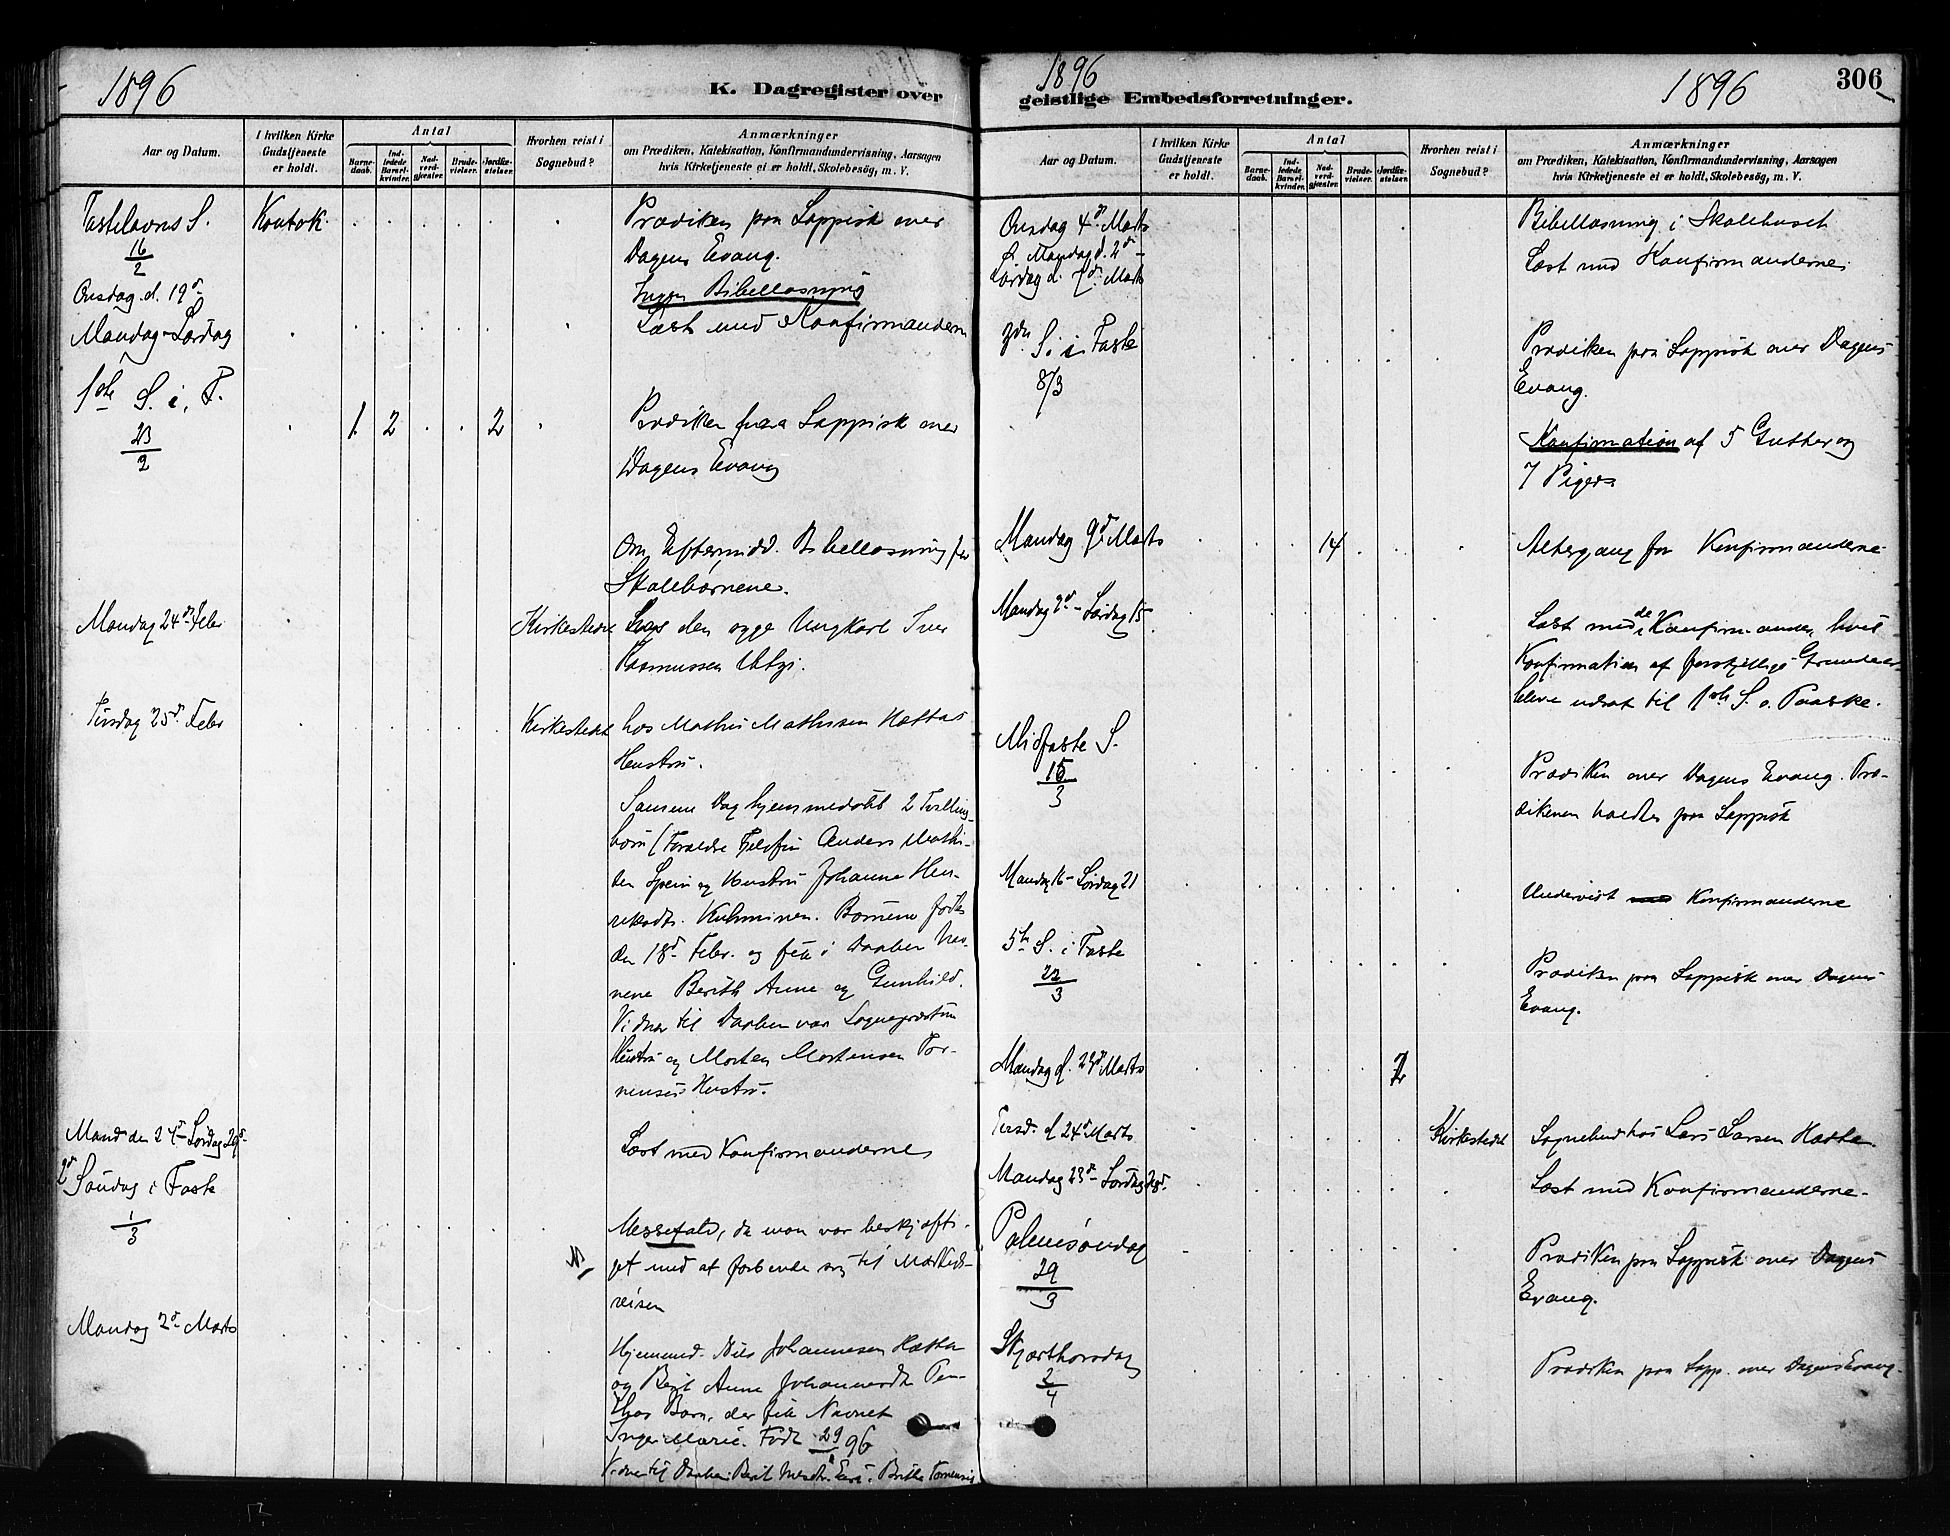 1896
K. Dagregister over
Aar og Datum.
I hvilken Kirke Gudstjeneste er holdt.
Antal
Barnedaab.
Indledede Barselkvinder.
Nadverdgjæster.
Brudevielser.
Jordfæstelser.
Hvorhen reist i Sognebud?
Anmærkninger
om Prædiken, Katekisation, Konfirmandundervisning, Aarsagen
hvis Kirketjeneste ei er holdt, Skolebesög, m. V.
Fastelavns S. Kautok. Prædiken paa Lappisk over
16/2 Dagens Evang.
Onsdag d. 19d Ingen Bibellæsning
Mandag-Lørdag Læst med Konfirmanderne
1ste S. i. F.
23/2 1 2 2 Prædiken paa Lappisk over
Dagens Evang
Om Eftermidd. Bibellæsning for
Skolebørnene.
Mandag 24de Febr Kirkestedet Hos den syge Ungkarl Iver
Rasmussen Utsi.
Tirsdag 25d Febr Kirkestedet hos Mathis Mathisen Hættas
Hustru.
Samme Dag hjemmedøbt 2 Tvilling-
børn (Forældre Fjeldfin Anders Mathi-
sen Spein og Hustru Johanne Hen-
riksdtr. Kuhmunen. Børnene fødte
den 18d Febr. og fik i Daaben Nav-
nene Berith Anne og Gunhild.
Vidner til Daaben var Sognepræstens
Hustru og Morten Mortensen Tor-
nensis Hustru.
Mand. den 24d-Lørdag 29d. Læst med Konfirmanderne
2d Søndag i Faste
1/3 Messefald, da man var beskjæfti-
get med at forberede sig til Markeds-
reisen
Mandag 2d Marts
Hjemmed. Nils Johannesen Hætta
og Berit Anne Johannesdtr
Barn, der fik Navnet
Inger Marie. Født 29 96
Vidner til Daaben Berit
1896
1896
306
geistlige Embedsforretninger.
Aar og Datum.
I hvilken Kirke Gudstjeneste er holdt.
Antal
Barnedaab.
Indledede Barselkvinder.
Nadverdgjæster.
Brudevielser.
Jordfæstelser.
Hvorhen reist i Sognebud?
Anmærkninger
om Prædiken, Katekisation, Konfirmandundervisning, Aarsagen
hvis Kirketjeneste ei er holdt, Skolebesög, m. V.
Onsdag 4d Marts Bibellæsning i Skolehuset
Mandag d. 2d -
Lørdag d. 7d Marts Læst med Konfirmanderne
3die S. i Faste Prædiken paa Lappisk over Dagens
8/3 Evang.
Konfirmation af 5 Gutter og
7 Piger
Mandag 9d Marts 14 Altergang for Konfirmanderne
Mandag - Lørdag Læst med de Konfirmander, hvis
Konfirmation af forskjellige Grunde er
bleve udsat til 1ste S. e. Paaske.
Midfaste S.
15/3 Prædiken over Dagens Evang. Præ-
dikenen holdtes paa Lappisk
Mandag 16-Lørdag 21 Undervist Konfirmanderne
5te S. i Faste
22/3 Prædiken paa Lappisk over Dagens
Evang.
Mandag d. 23d Marts 2
Tirsd. d 24d Marts Kirkestedet Sognebud hos Lars Larsen Hætta
Mandag 23d - Lørdag 28d. Læst med Konfirmanderne.
Palmesøndag
29/3 Prædiken paa Lappisk over Dagens
Evang.
Skjærthorsdag
2/4 Prædiken paa Lapp. over Dagens Evang.